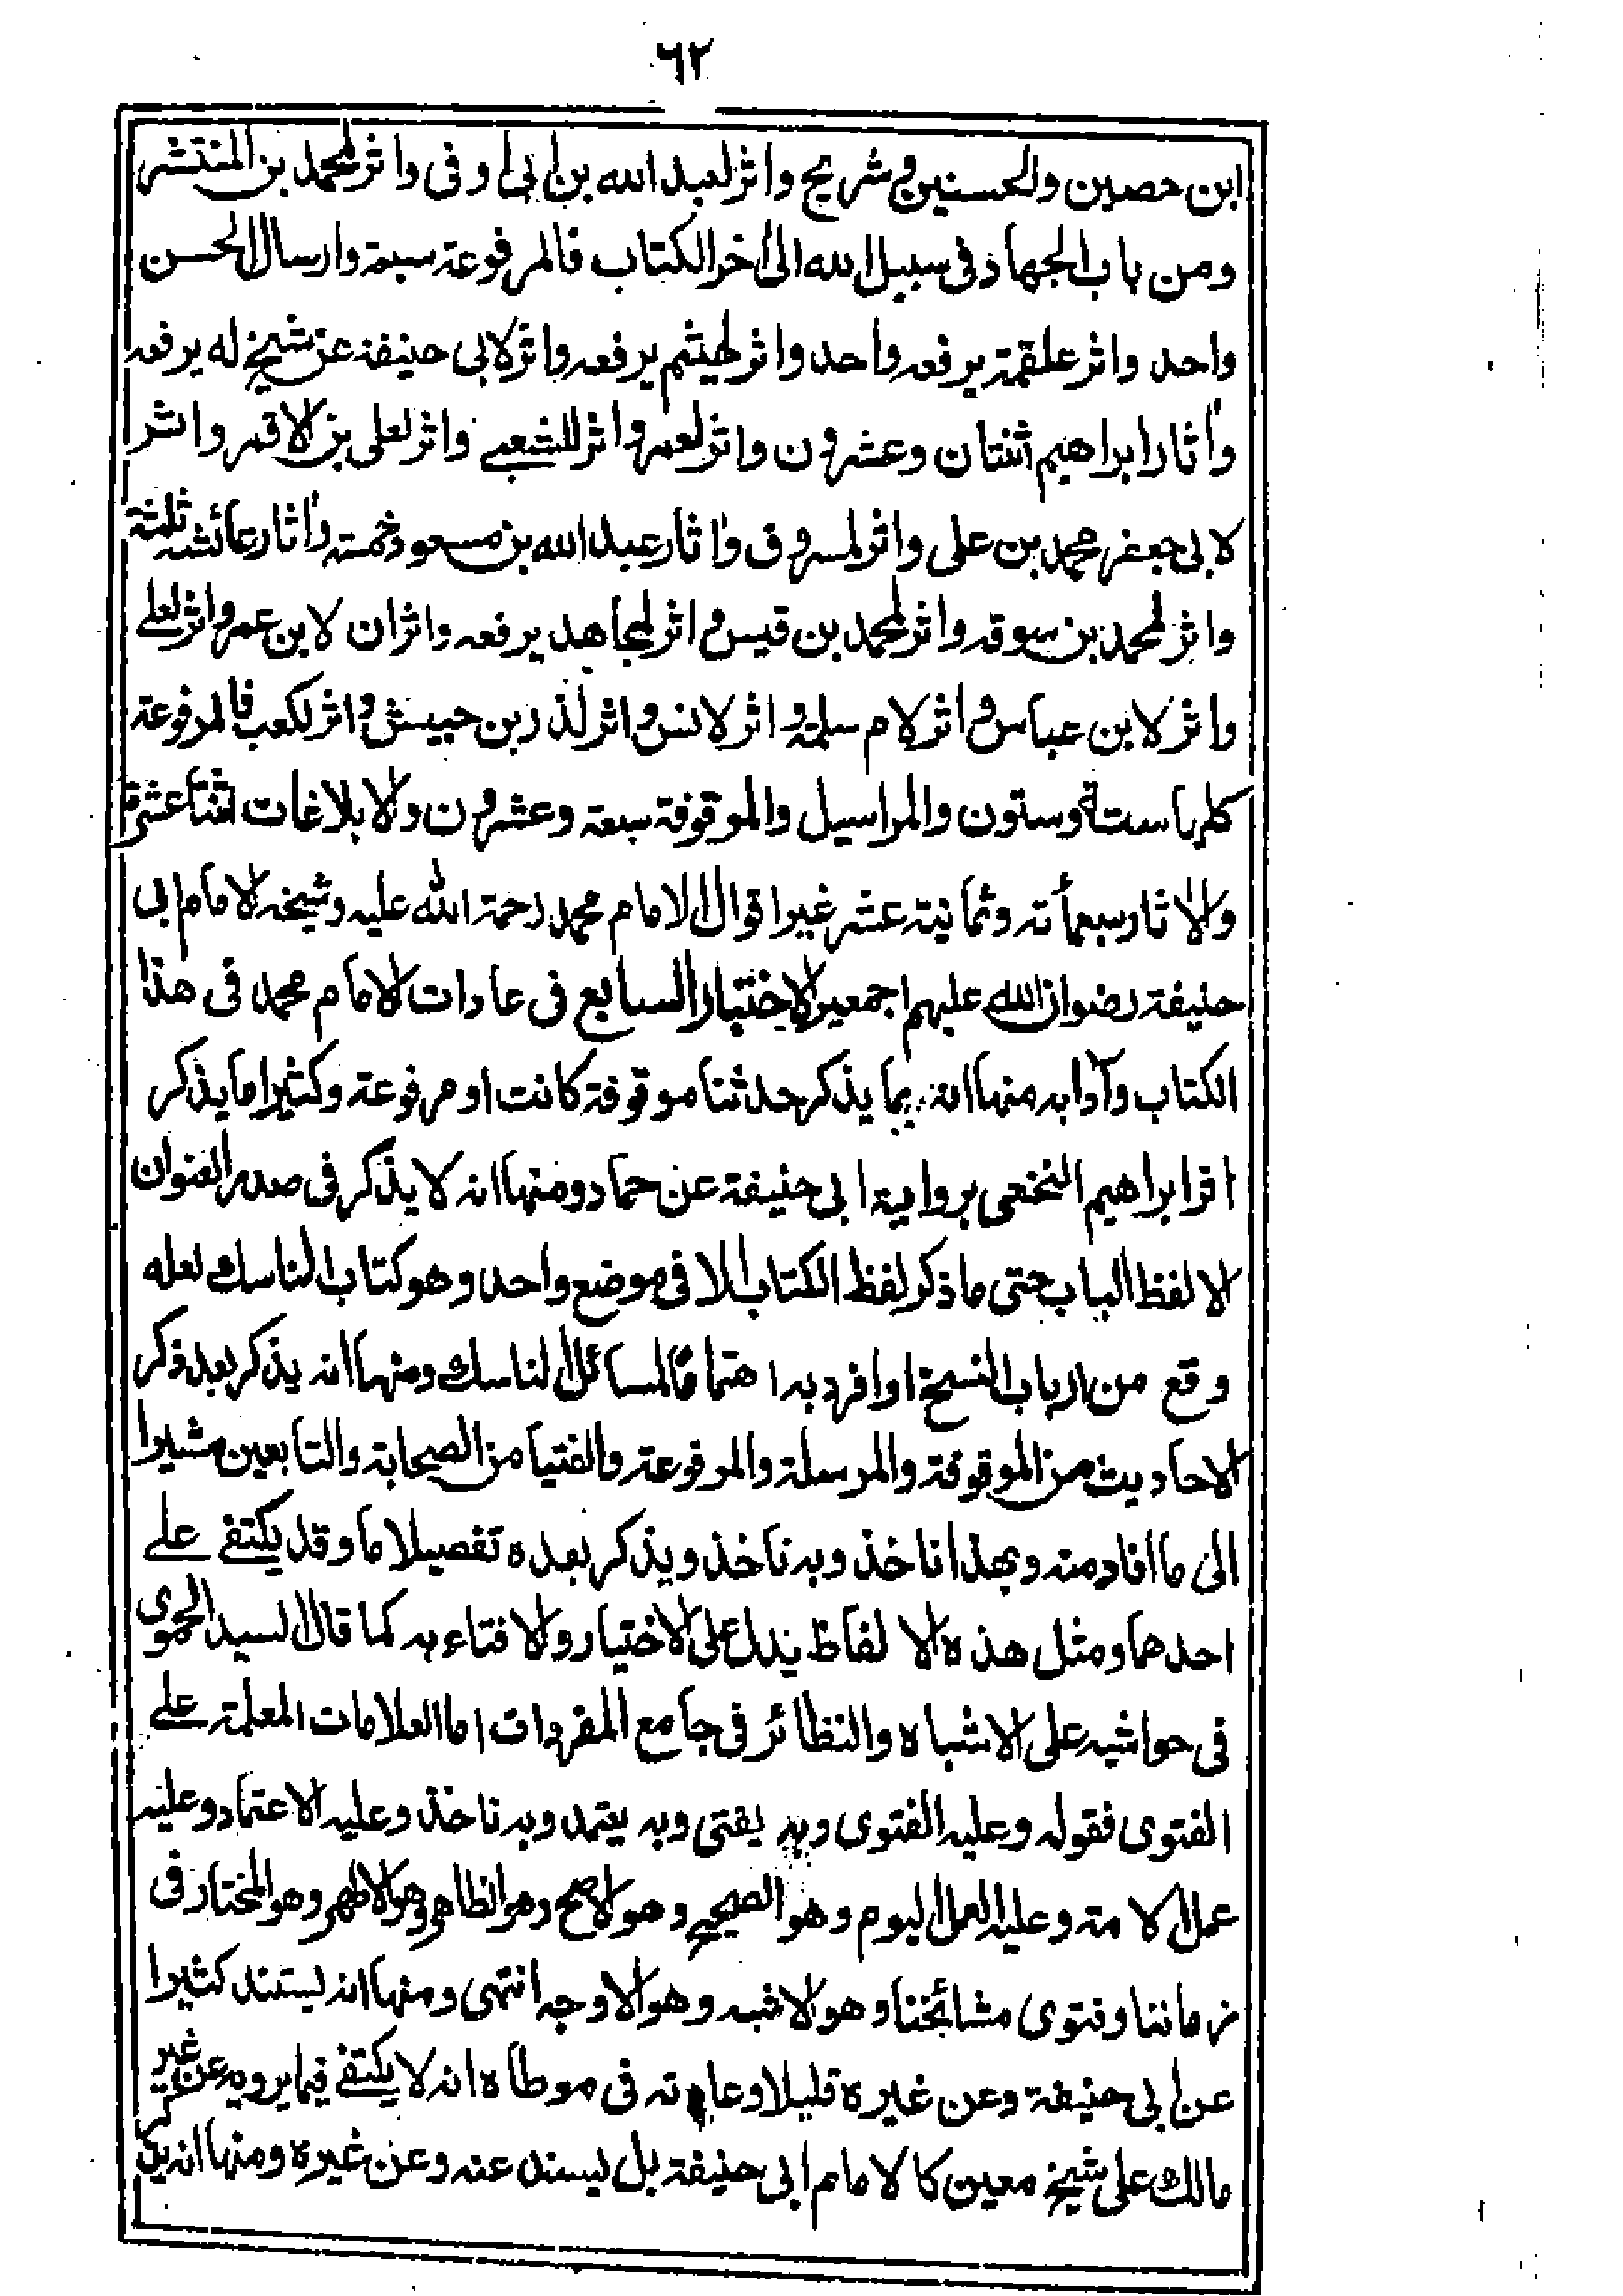 ٦٢
ابن حصين والحسنين وشريح واثر لعبد الله بن ابى اوفى واثر لمحمد بن المنتشر
ومن باب الجهاد فى سبيل الله الى اخر الكتاب فالمرفوعة سبعة وارسال الحسن
واحد واثر علقمة يرفعه واحد واثر لهيثم يرفعه واثر لابى حنيفة عن شيخ له يرفعه
واٰثار ابراهيم اثنتان وعشرون واثر لعمر واثر للشعبے واثر لعلى بن الاقمر واثر
لابى جعفر محمد بن على واثر لمسروق واٰثار عبد الله بن مسعود خمسة واٰثار عائشه ثلثة
واثر لمحمد بن سوقه واثر لمحمد بن قيس واثر لمجاهد يرفعه واثران لابن عمر واثر لعلے
واثر لابن عباس واثر لام سلمة واثر لانس واثر لذر بن حبيش واثر لكعب فالمرفوعة
كلها ستة وستون والمراسيل والموقوفة سبعة وعشرون والابلاغات اثنتا عشرة
والاٰثار سبعمأته وثمانية عشر غير اقوال الامام محمد رحمة الله عليه وشيخه الامام ابى
حنيفة رضوان الله عليهم اجمعين الاختبار السابع فى عادات الامام محمد فى هذا
الكتاب وآدابه منها انه بما يذكر حدثنا موقوفة كانت او مرفوعة وكثيرا ما يذكر
اقر ابراهيم النخعى برواية ابى حنيفة عن حماد ومنها انه لا يذكر فى صدر العنوان
الا لفظ الباب حتى ما ذكر لفظ الكتاب الا فى موضع واحد وهو كتاب المناسك لعله
وقع من ارباب النسخة او افرد به اهتماما لمسائل المناسك ومنها انه يذكر بعد ذكر
الاحاديث من الموقوفة والمرسلة والمرفوعة والفتيا من الصحابة والتابعين مشيرا
الى ما افاد منه وبهذا ناخذ وبه ناخذ ويذكر بعده تفصيلا ما وقد يكتفے علے
احدهما ومثل هذه الا لفاظ يدل على الاختيار والافتاء به كما قال السيد الحموى
فى حواشيه على الاشباه والنظائر فى جامع المفردات اما العلامات المعلمة علے
الفتوى فقوله وعليه الفتوى وبه يفتى وبه يعتمد وبه ناخذ وعليه الاعتماد وعليه
عمل الامة وعليه العمل اليوم وهو الصحيح وهو الاصح وهو الظاهر وهو الاظهر وهو المختار فى
زماننا وفتوى مشائخنا وهو الاشبه وهو الاوجه انتهى ومنها انه يستند كثيرا
عن ابى حنيفة وعن غيره قليلا وعادته فى موطاه انه لا يكتفے فيما يرويه عن غير
مالك على شيخ معين كالامام ابى حنيفة بل يسند عنه وعن غيره ومنها انه يذكر